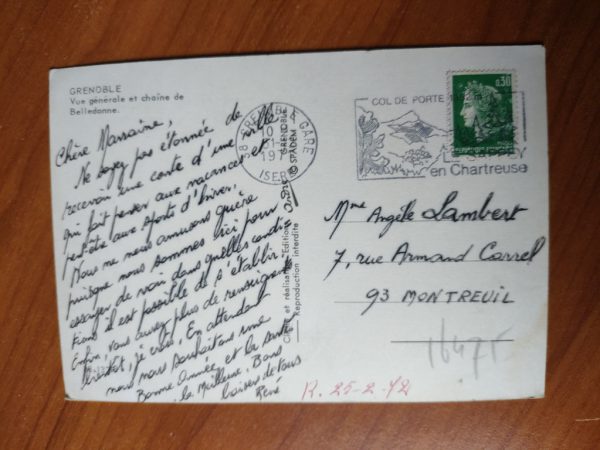 GRENOBLE
Vue générale et chaîne de
Belledonne.
Chère Marraine,
Ne soyez pas étonnée de
recevoir une carte d'une ville
qui fait penser aux vacances et
peut-être aux sports d'hiver.
Nous ne nous amusons guère
puisque nous sommes ici pour
essayer de voir dans quelles condi-
tions il est possible de s'établir.
Enfin, vous aurez plus de renseignements
bientôt, je crois. En attendant
nous vous souhaitons une
Bonne Année et la santé
la Meilleure. Bons
baisers de tous
René
38 GRENOBLE GARE
10
ISERE
GRENOBLE
© SPADEM
Reproduction interdite
COL DE PORTE
LE SAPPEY
en Chartreuse
0,30
Mme Angèle Lambert
7, rue Armand Carrel
93 MONTREUIL
R. 25-2-72